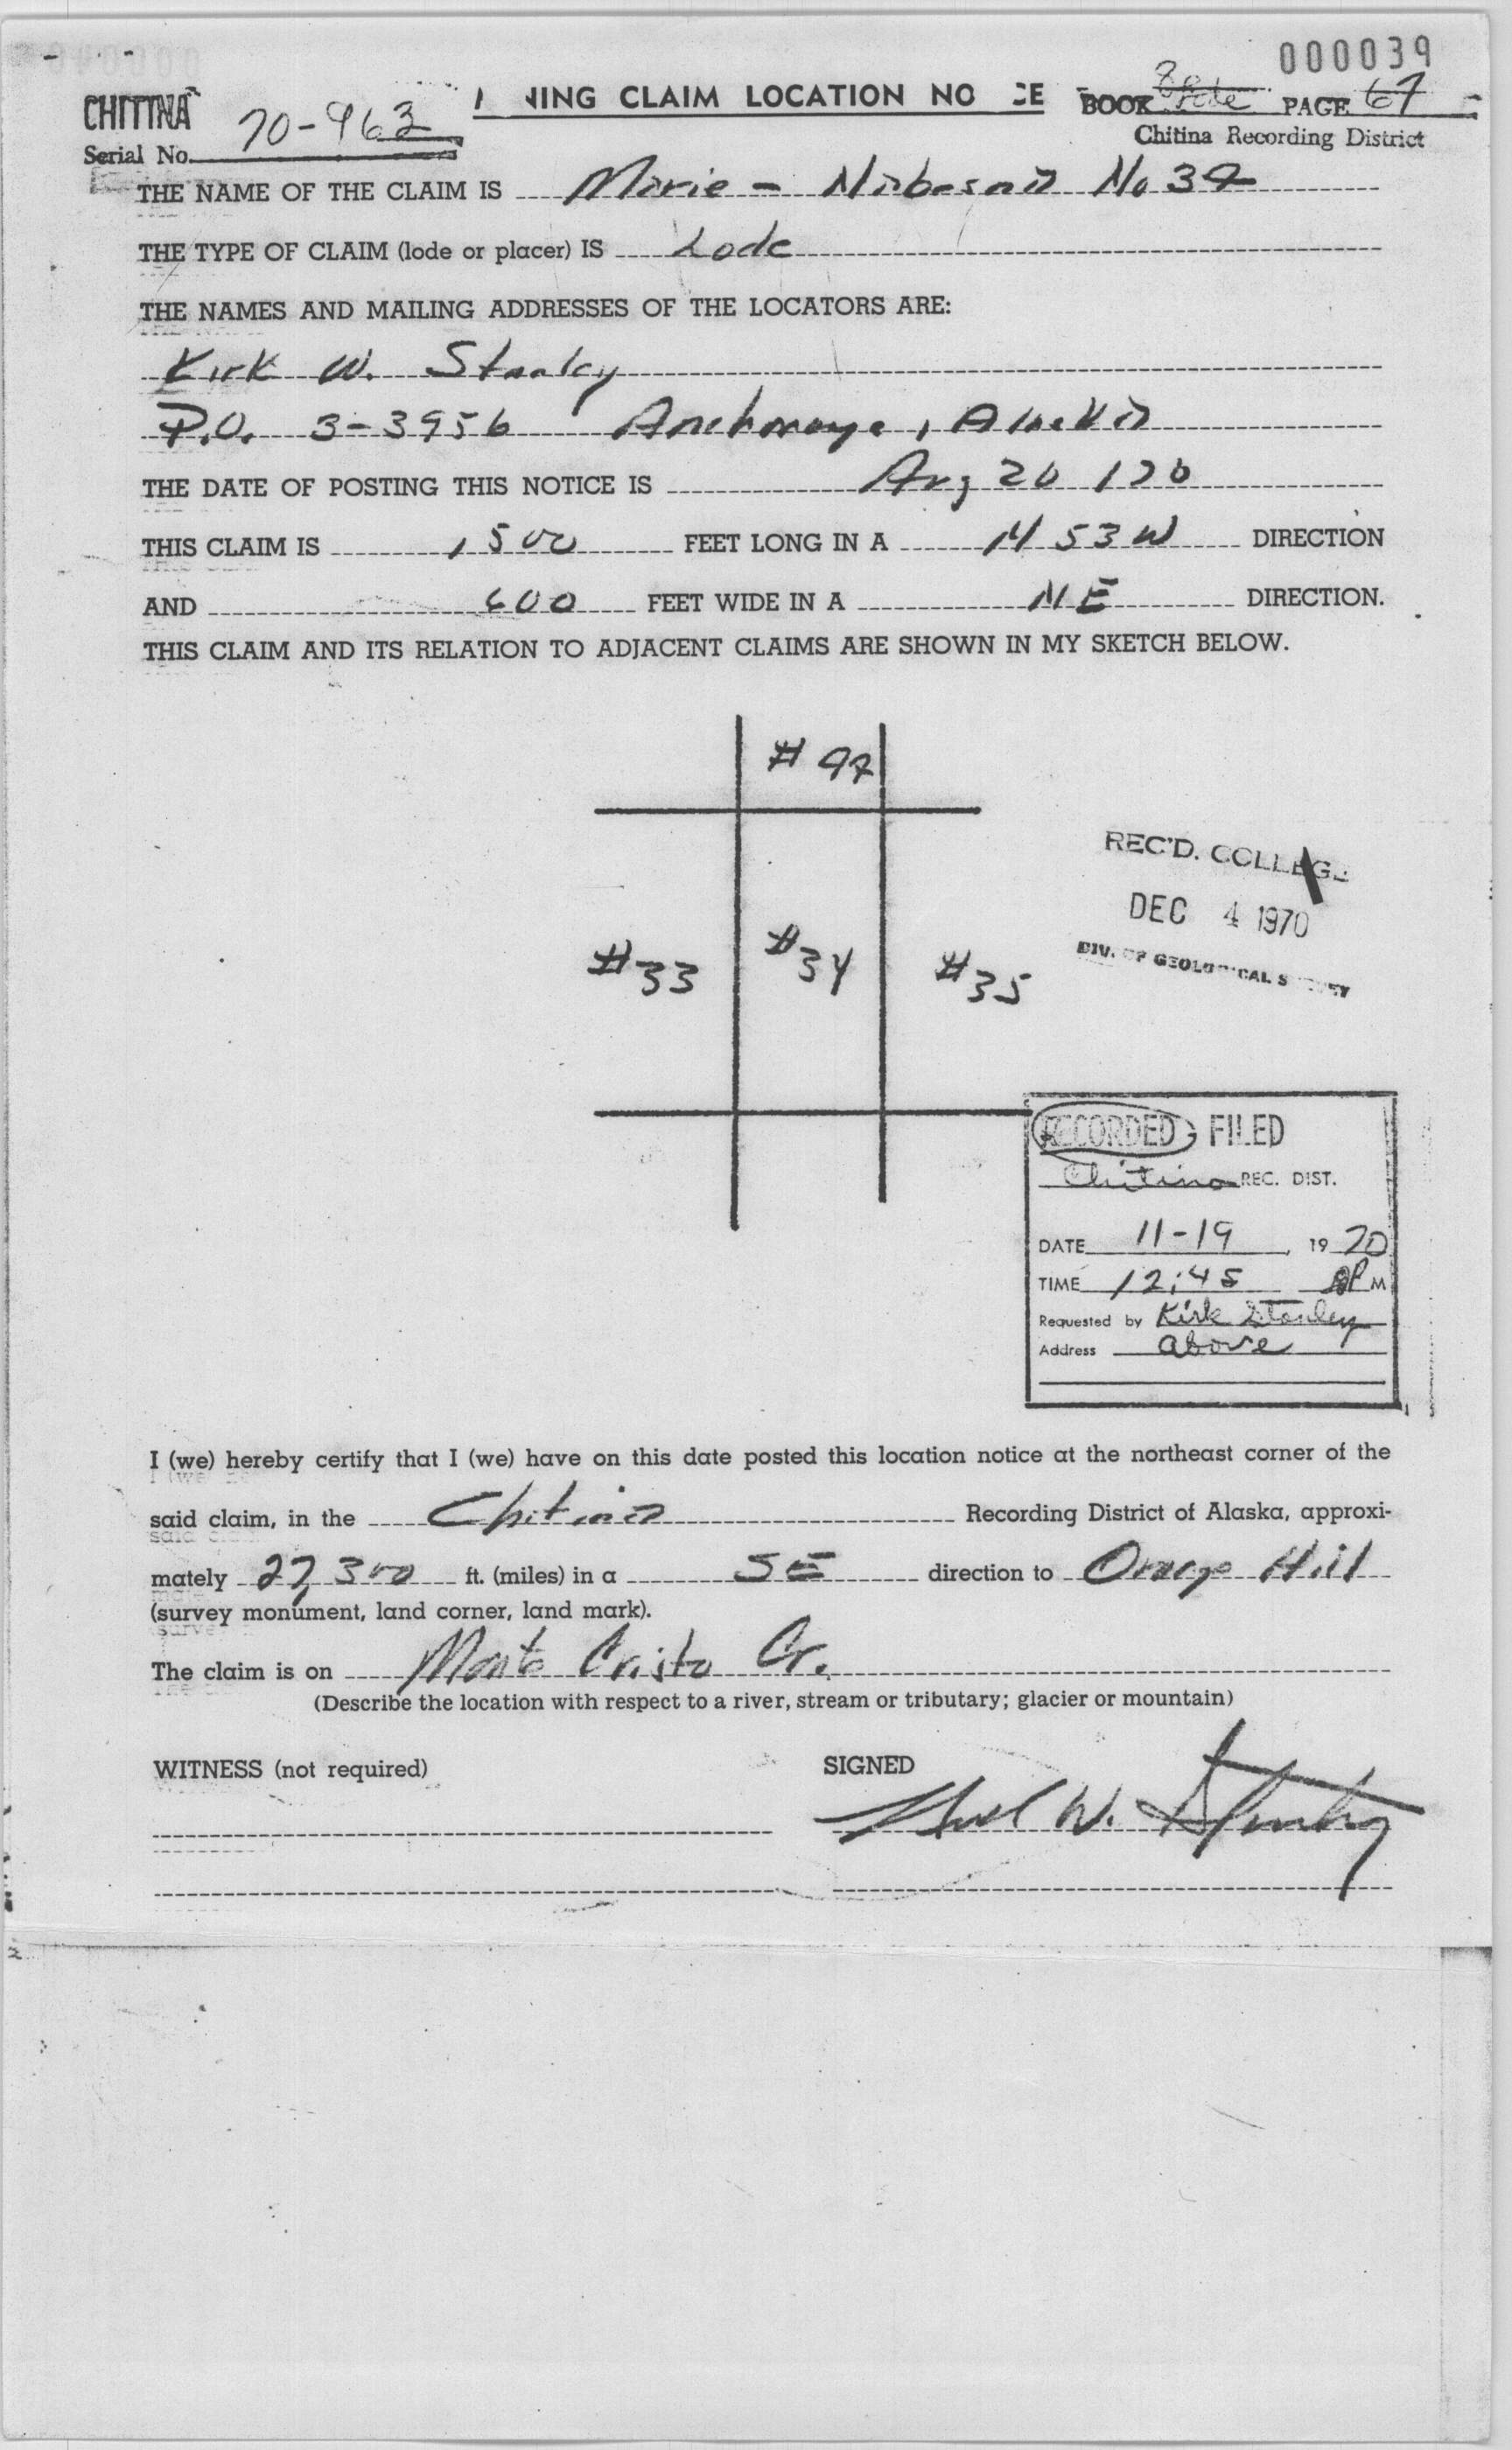 000039
CHITINA
Serial No. 70-963
NING CLAIM LOCATION NO CE
BOOK PAGE 67
Chitina Recording District
THE NAME OF THE CLAIM IS Marie - Nabesna No 34
THE TYPE OF CLAIM (lode or placer) IS Lode
THE NAMES AND MAILING ADDRESSES OF THE LOCATORS ARE:
Kirk W. Stanley
P.O. 3-3956 Anchorage, Alaska
THE DATE OF POSTING THIS NOTICE IS Aug 20 170
THIS CLAIM IS 1500 FEET LONG IN A N 53 W DIRECTION
AND 600 FEET WIDE IN A NE DIRECTION.
THIS CLAIM AND ITS RELATION TO ADJACENT CLAIMS ARE SHOWN IN MY SKETCH BELOW.
# 94
#33 #34 #35
REC'D. COLLEGE
DEC 4 1970
DIV. OF GEOLOGICAL SURVEY
RECORDED - FILED
Chitina REC. DIST.
DATE 11-19, 1970
TIME 12:45 PM
Requested by Kirk Stanley
Address above
I (we) hereby certify that I (we) have on this date posted this location notice at the northeast corner of the
said claim, in the Chitina Recording District of Alaska, approxi-
mately 27,300 ft. (miles) in a SE direction to Orange Hill
(survey monument, land corner, land mark).
The claim is on Monte Cristo Cr.
(Describe the location with respect to a river, stream or tributary; glacier or mountain)
WITNESS (not required) SIGNED
Kirk W. Stanley